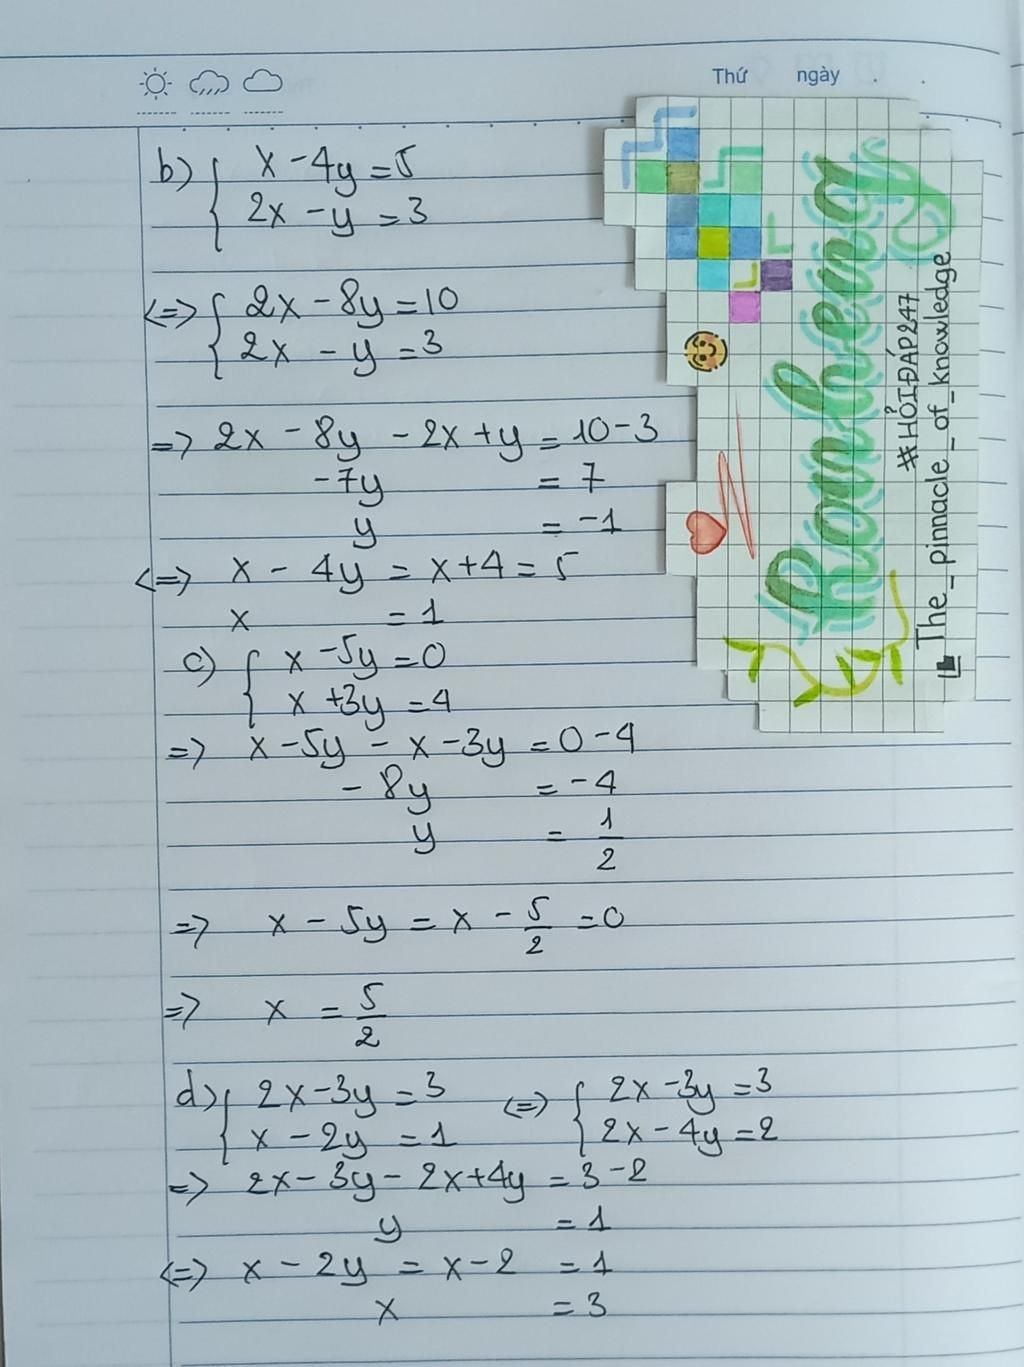 Thứ ngày . .
b) { x - 4y = 5
2x - y = 3
<=> { 2x - 8y = 10
2x - y = 3
=> 2x - 8y - 2x + y = 10 - 3
-7y = 7
y = -1
<=> x - 4y = x + 4 = 5
x = 1
c) { x - 5y = 0
x + 3y = 4
=> x - 5y - x - 3y = 0 - 4
- 8y = -4
y = 1/2
=> x - 5y = x - 5/2 = 0
=> x = 5/2
d) { 2x - 3y = 3 <=> { 2x - 3y = 3
x - 2y = 1 2x - 4y = 2
=> 2x - 3y - 2x + 4y = 3 - 2
y = 1
<=> x - 2y = x - 2 = 1
x = 3
#HỎIĐÁP247
The_pinnacle_of_knowledge